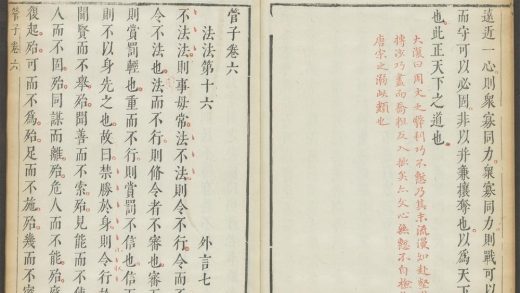 遠近一心則眾寡同力眾寡同力則戰可以
而守可以必固非以并兼攘奪也以為天下
也此正天下之道也
大復曰周文之弊利巧不慙乃其末流漫知赴
巧畫而喬粗反入矣文心無慙不自檢
唐宋之漸此類也
管子卷六
法法第十六 外言七
不法法則事毋常法不法則令不行令而不
令不法也法而不行則脩令者不審也審
則賞罰輕也重而不行則賞罰不信也信而
則不以身先之也故曰禁勝於身則令行於
聞賢而不舉殆聞善而不索殆見能而不
人而不固殆同謀而離殆危人而不能殆廢
復起殆可而不為殆足而不施殆幾而不密
管子卷六